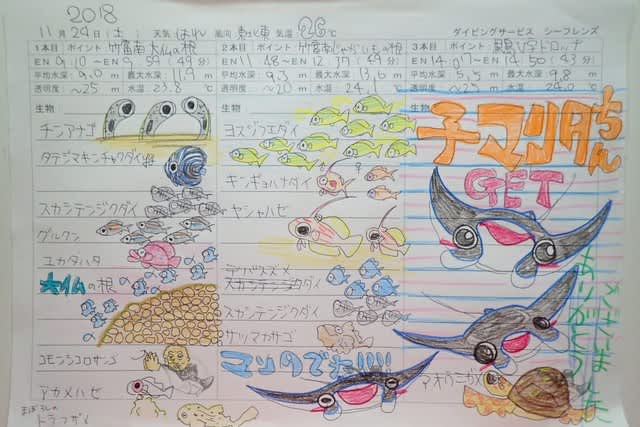 2018
11月24日(土) 天気 はれ 風向 東北東 気温 26℃ ダイビングサービス シーフレンズ
1本目 ポイント 竹富南 大仏の根
EN 9:10 〜 EX 9:59 (49分)
平均水深 9.0 m 最大水深 11.9 m
透明度 〜25 m 水温 23.8 ℃
生物
チンアナゴ
タテジマキンチャクダイ
スカシテンジクダイ
グルクン
ユカタハタ
大仏の根
コモンシコロサンゴ
アカメハゼ
まぼろしの
トラフザメ
2本目 ポイント 竹富南 じゃがいもの根
平均水深 9.3 m 最大水深 13.6 m
透明度 〜20 m 水温 24.1 ℃
生物
ヨスジフエダイ
キンギョハナダイ
ヤシャハゼ
デバスズメダイ
スカシテンジクダイ
サツマカサゴ
マンタのでた!!!!
3本目 ポイント V字ドロップ
平均水深 5.5 m 最大水深 9.8 m
透明度 〜25 m 水温 24.0 ℃
生物
子マンタちゃん
GET
アオウミガメ